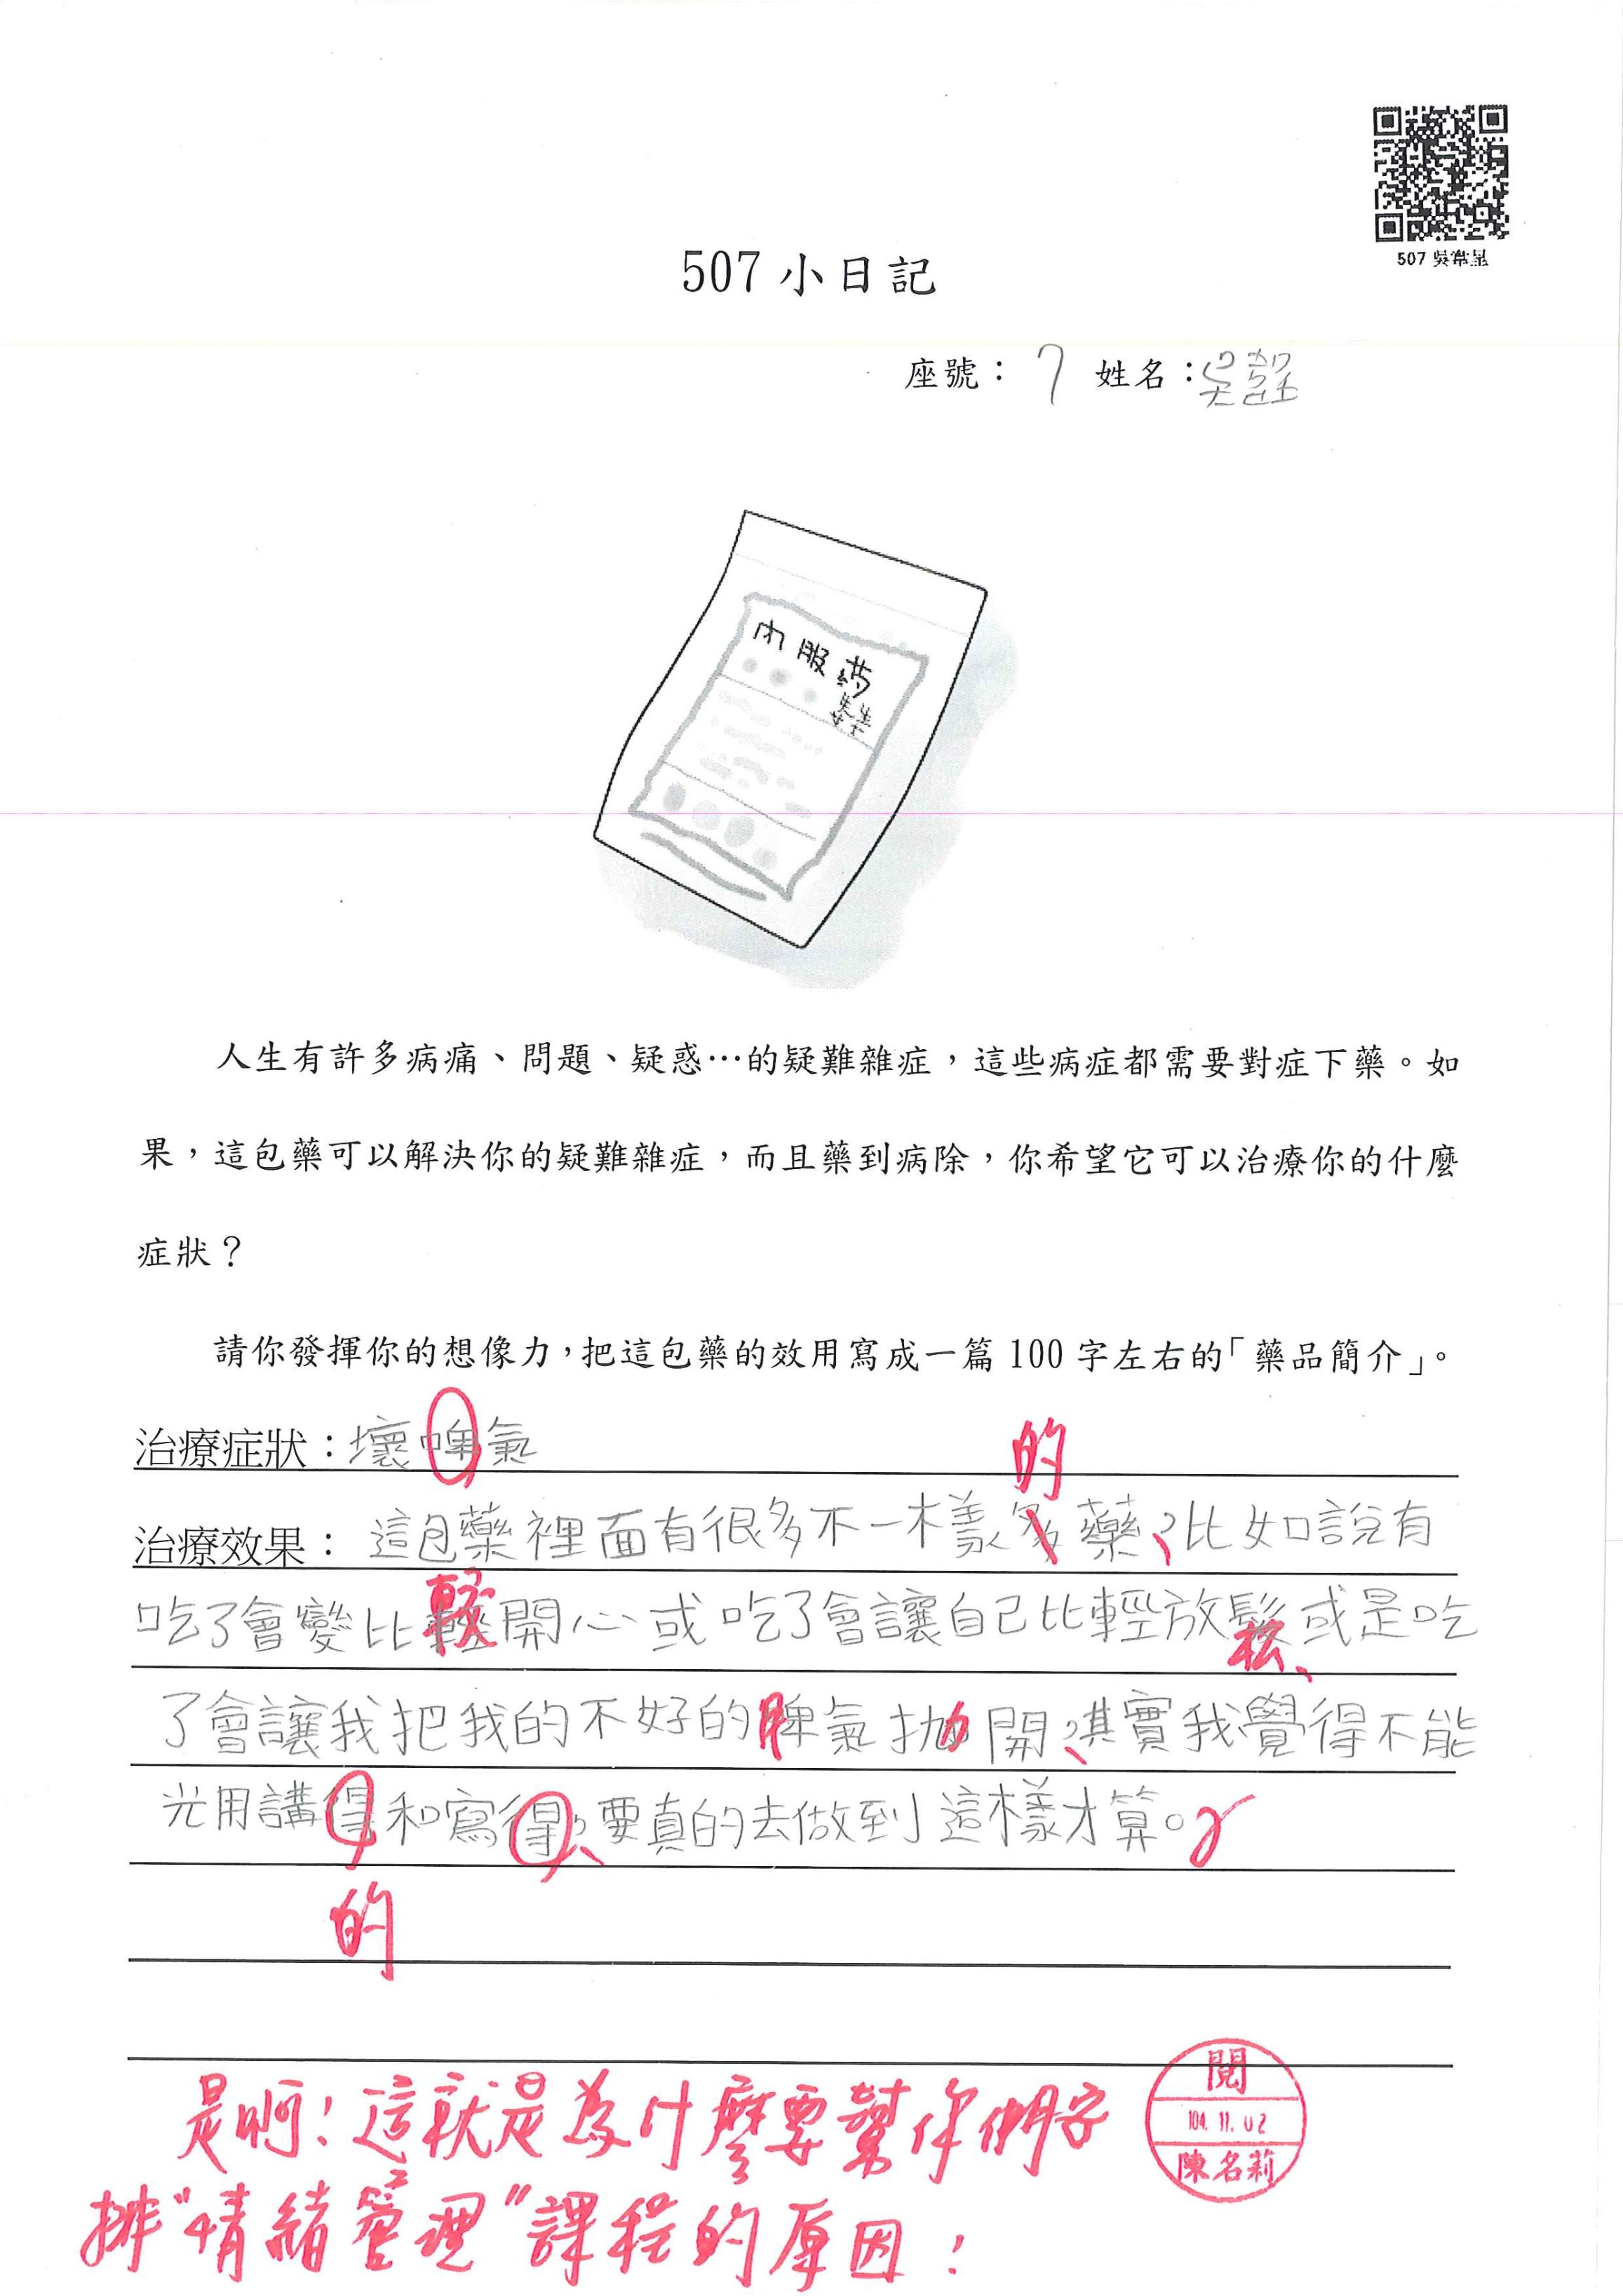 507 吳常昰
507 小日記
座號： 7 姓名：吳
內服藥
人生有許多病痛、問題、疑惑…的疑難雜症，這些病症都需要對症下藥。如
果，這包藥可以解決你的疑難雜症，而且藥到病除，你希望它可以治療你的什麼
症狀？
請你發揮你的想像力，把這包藥的效用寫成一篇 100 字左右的「藥品簡介」。
治療症狀：壞啤氣
的
治療效果： 這包藥裡面有很多不一樣多藥，比如說有
吃了會變比較開心或吃了會讓自己比輕放鬆、或是吃
了會讓我把我的不好的脾氣拋開，其實我覺得不能
光用講得和寫得，要真的去做到這樣才算。
的
是啊！這就是為什麼要幫你們安
排“情緒管理”課程的原因！
閱
104. 11. 02
陳名莉